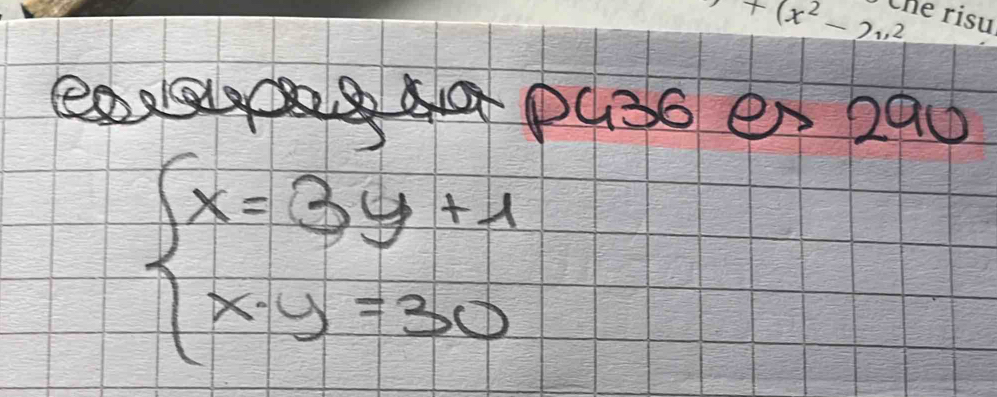 + (x² - 2y²
che risu
p436 es 290
x = 3y + 1
x·y = 30